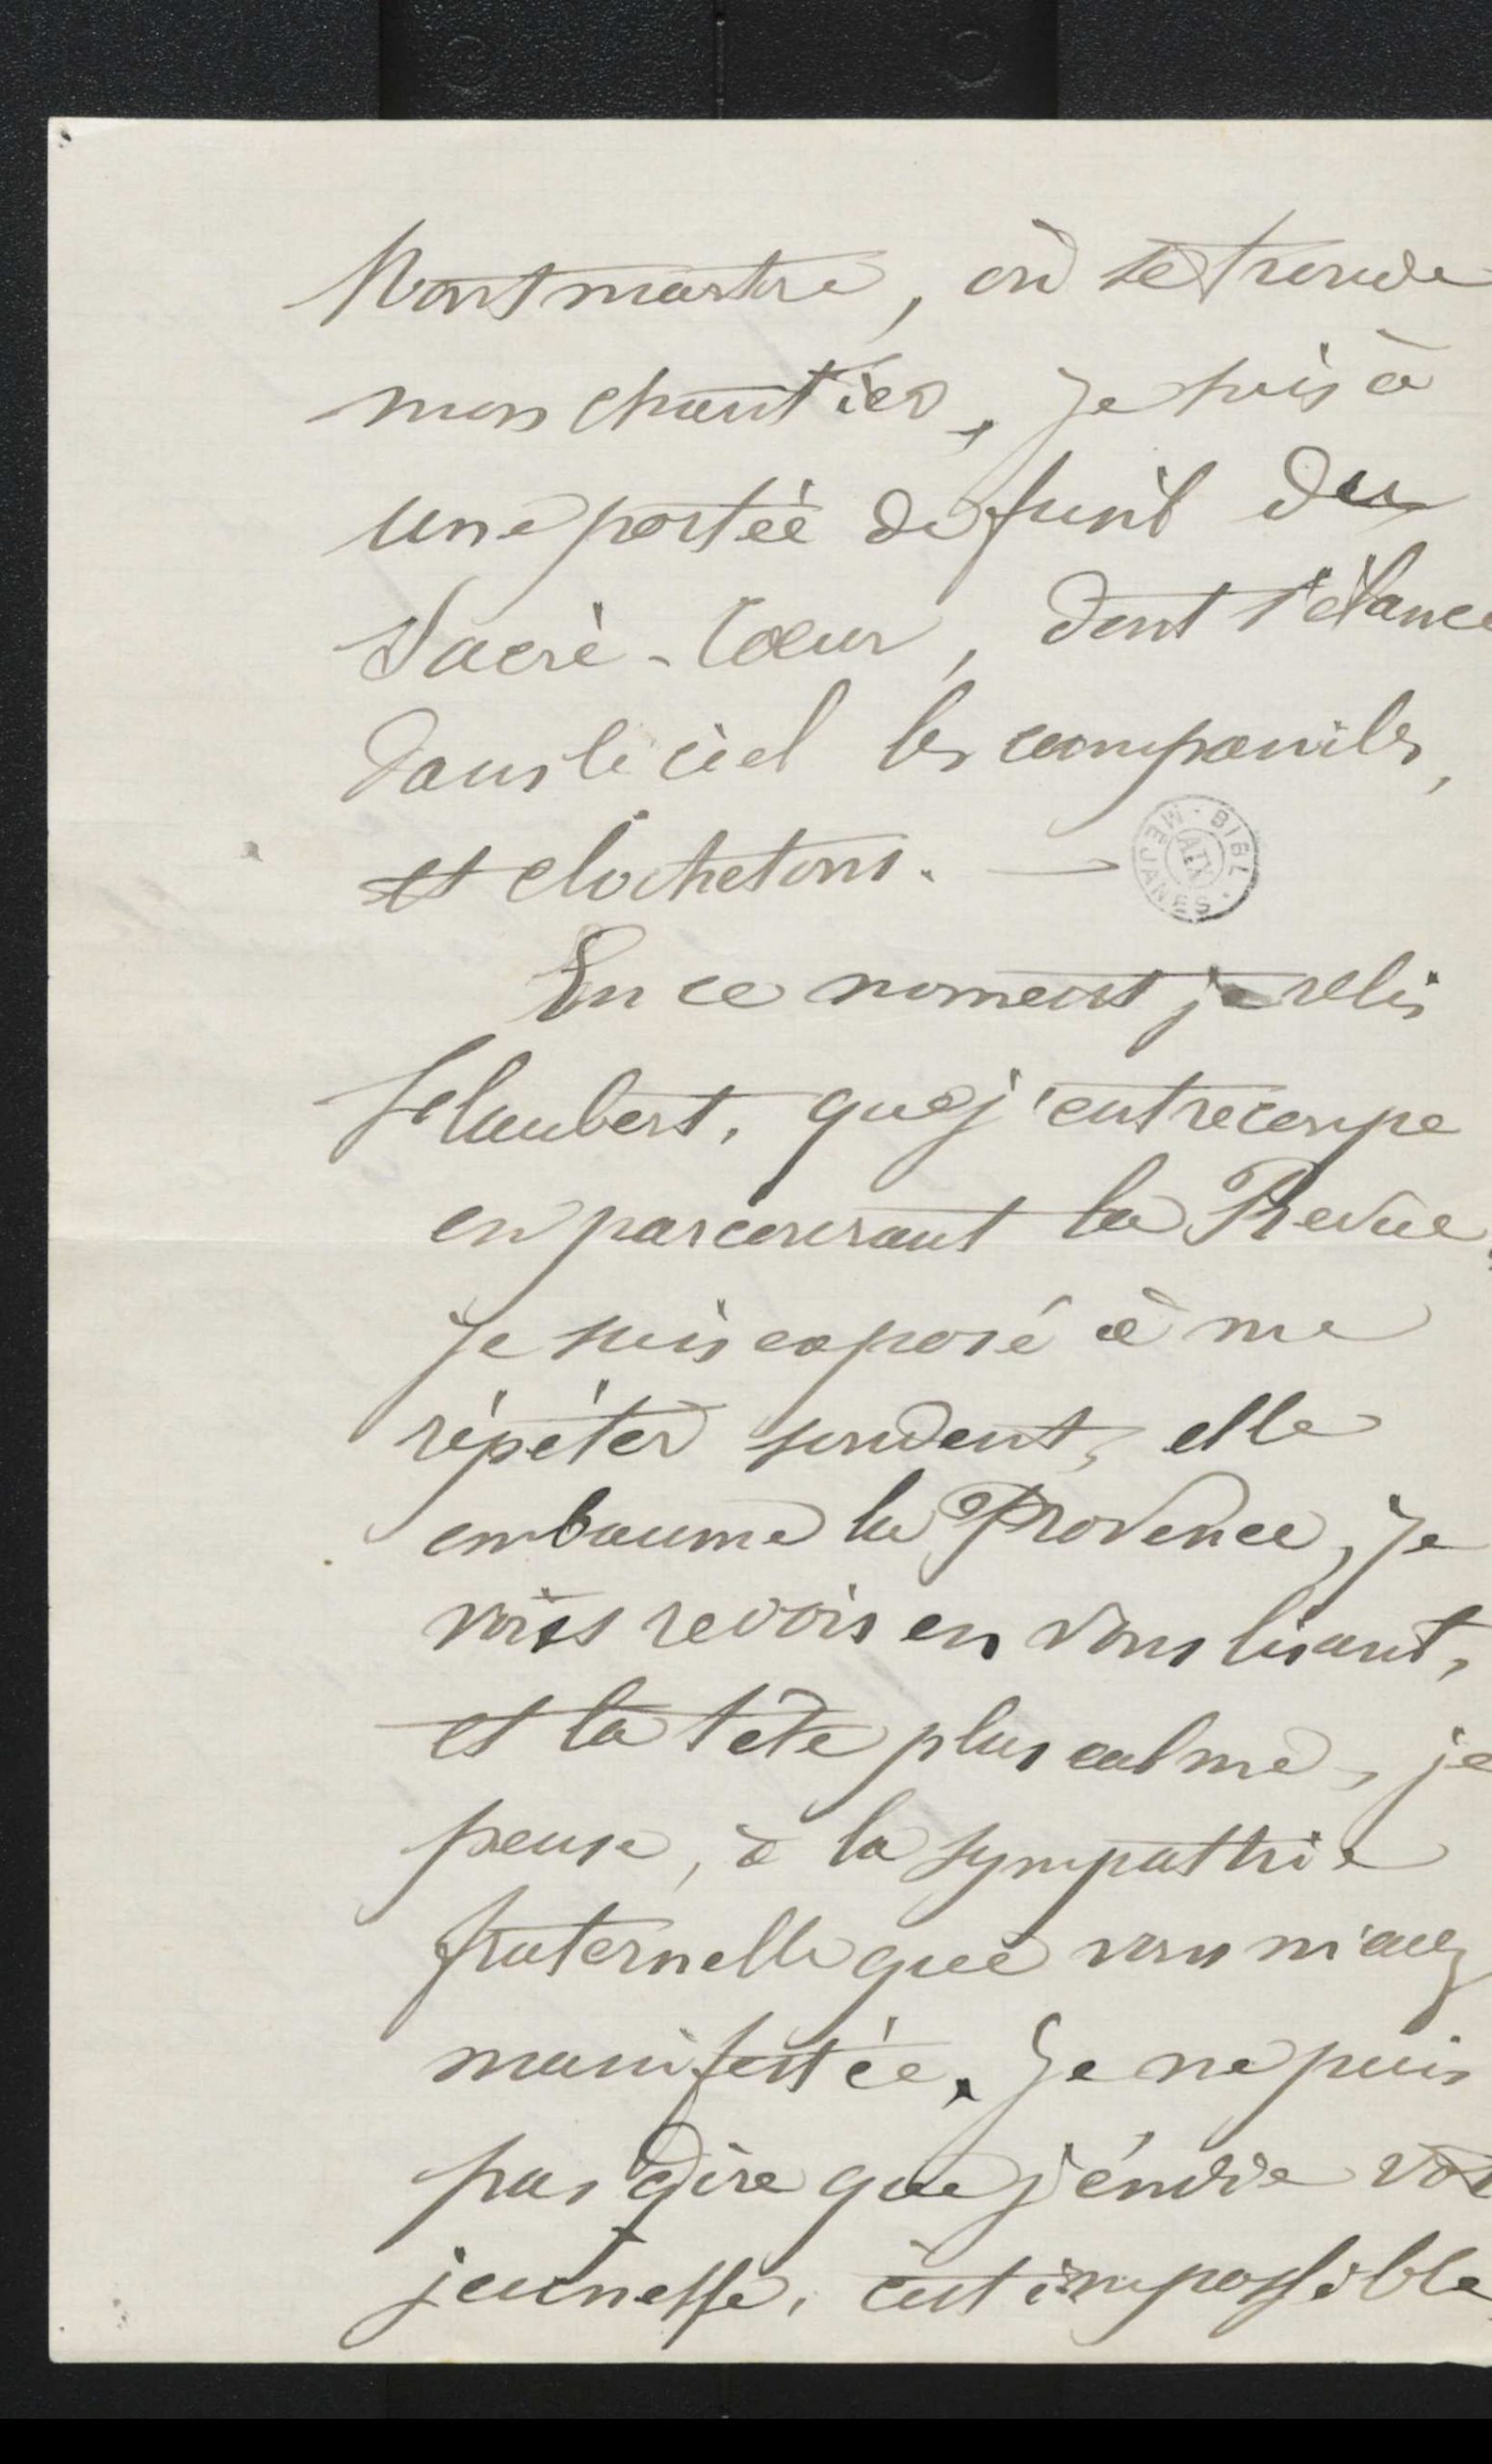 Montmartre, où se trouve
mon chantier, je suis à
une portée de fusil du
Sacré-Cœur, dont s'élance
dans le ciel les campaniles,
et clochetons. —
BIBL. MEJANES. AIX
En ce moment je relis
Flaubert, que j'entrecoupe
en parcourant la Revue,
je suis exposé à me
répéter souvent, elle
embaume la Provence, je
vous revois en vous lisant,
et la tête plus calme, je
pense, à la sympathie
fraternelle que vous m'avez
manifestée. Je ne puis
pas dire que j'envie vot
jeunesse, c'est impossible,